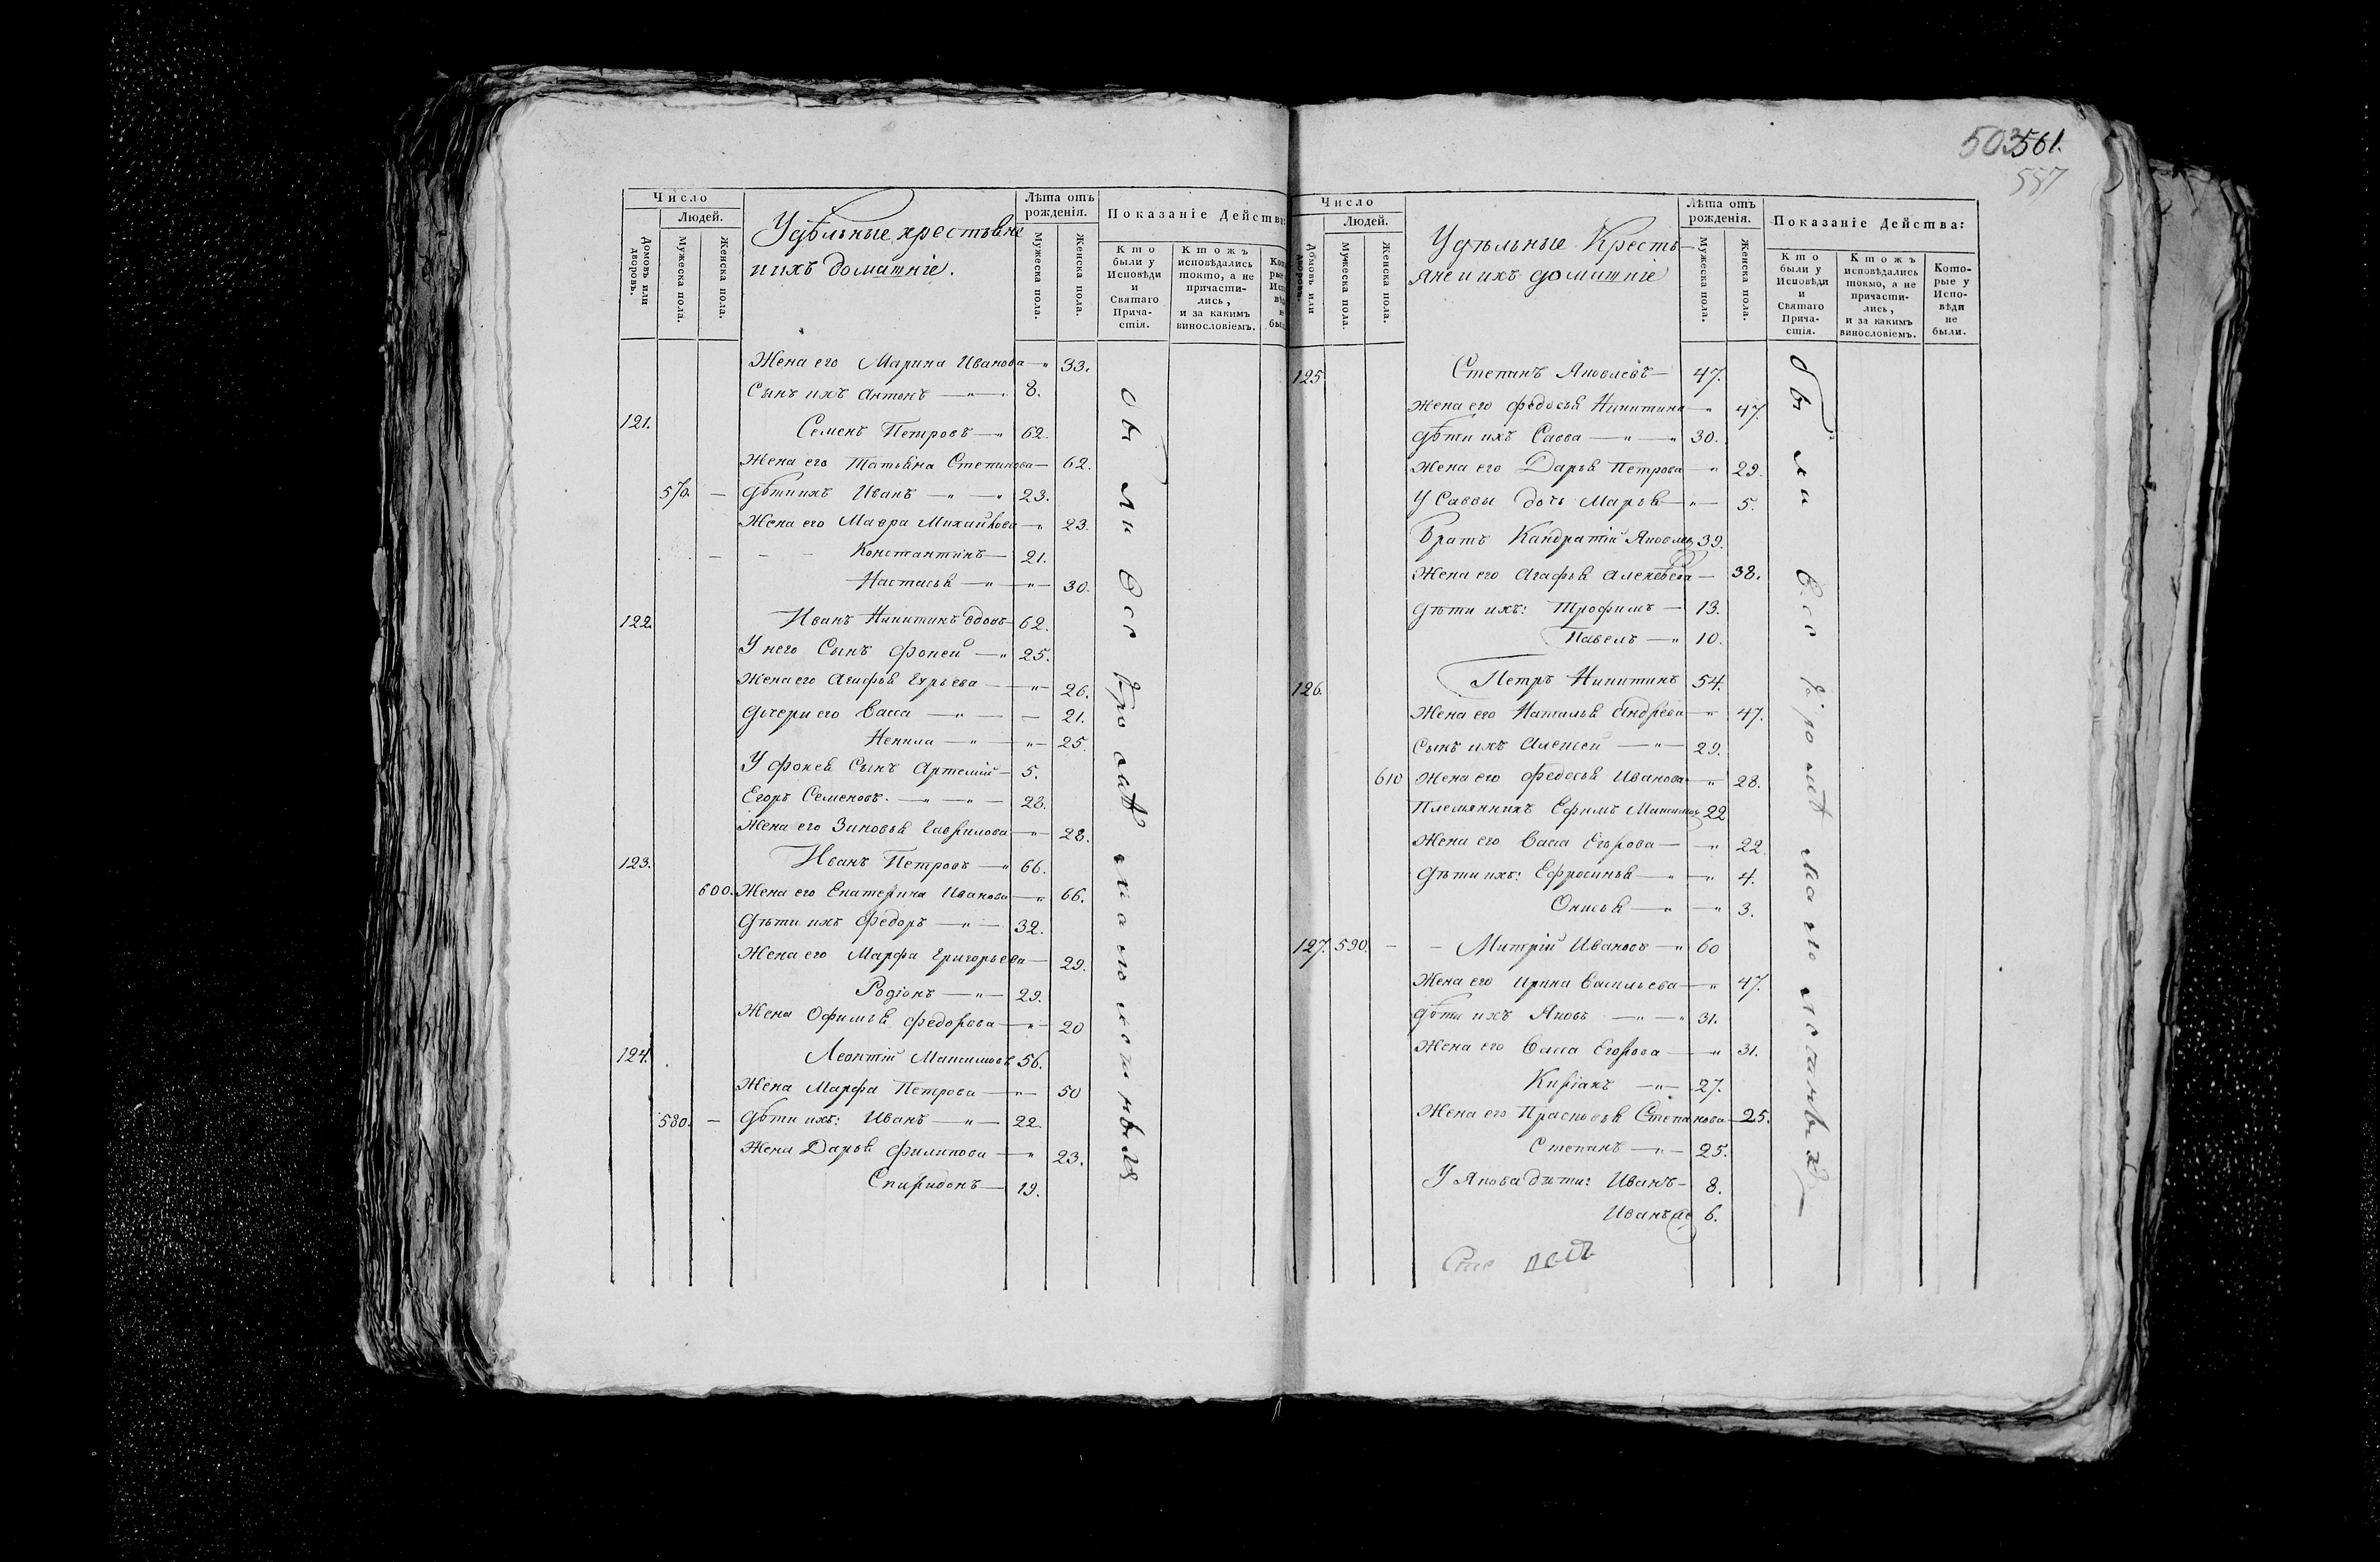 503 561.
557
Число
Людей.
Домовъ или дворовъ.
Мужеска пола.
Женска пола.
Удѣльные крестьяне
и ихъ домашніе.
Лѣта отъ рожденія.
Мужеска пола.
Женска пола.
Показаніе Действа:
Кто были у Исповѣди и Святаго Прича-стія.
Ктожъ исповѣдались токмо, а не причасти-лись, и за какимъ винословіемъ.
Жена его Марина Иванова — " 33.
Сынъ ихъ Антонъ — " — 8.
121. Семенъ Петровъ — " 62.
Жена его Татьяна Степанова — 62.
570. — Дѣти ихъ Иванъ — " — " 23.
Жена его Мавра Михайлова — " 23.
— — — Константинъ — 21.
Настасья — " — " — 30.
122. Иванъ Никитинъ вдовъ — 62.
У него Сынъ Фокей — " 25.
Жена его Агафья Гурьева — " — 26.
Дочери его Васса — " — — 21.
Ненила — " — " — 25.
У Фокея Сынъ Артемій — 5.
Егоръ Семеновъ. — " — " — 28.
Жена его Зиновья Гаврилова — " — 28.
123. Иванъ Петровъ — " 66.
600. Жена его Екатерина Иванова — " 66.
Дѣти ихъ Федоръ — " — 32.
Жена его Марфа Григорьева — 29.
Родіонъ — " — 29.
Жена Офимья Федорова — " — 20
124. Леонтій Максимовъ 56.
Жена Марфа Петрова — " — 50
580. — Дѣти ихъ: Иванъ — " — 22.
Жена Дарья Филипова — " 23.
Спиридонъ — 19.
были Всѣ кромѣ малолетныхъ
Число
Людей.
Домовъ или дворовъ.
Мужеска пола.
Женска пола.
Удѣльные Кресть-
яне и ихъ домашніе
Лѣта отъ рожденія.
Мужеска пола.
Женска пола.
Показаніе Действа:
Кто были у Исповѣди и Святаго Прича-стія.
Ктожъ исповѣдались токмо, а не причасти-лись, и за какимъ винословіемъ.
Кото-рые у Испо-вѣди не были.
125 Степанъ Яковлевъ — 47.
Жена его Федосья Никитина — " 47.
Дѣти ихъ Савва — " — " 30.
Жена его Дарья Петрова — " 29.
У Саввы дочь Марья — " — 5.
Братъ Кандратій Яковлев 39.
Жена его Агафья Алексѣева — 38.
Дѣти ихъ: Трофимъ — 13.
Павелъ — " 10.
126. Петръ Никитинъ 54.
Жена его Наталья Андрева — " 47.
Сынъ ихъ Алексей — " — 29.
610 Жена его Федосья Иванова — " 28.
Племянникъ Ефимъ Максимов 22
Жена его Васса Егорова — " 22.
Дѣти ихъ: Ефросинья — " — " 4.
Онисья — " — " 3.
127. 590. — — Митрій Ивановъ — " 60
Жена его Ирина Васильева — " 47.
Дѣти ихъ Яковъ — " — " 31.
Жена его Васса Егорова — " 31.
Киріакъ — " — 27.
Жена его Прасковья Степанова — 25.
Степанъ — " — 25.
У Якова дѣти: Иванъ — 8.
Иванъ 6.
были Всѣ кромѣ малолетныхъ —